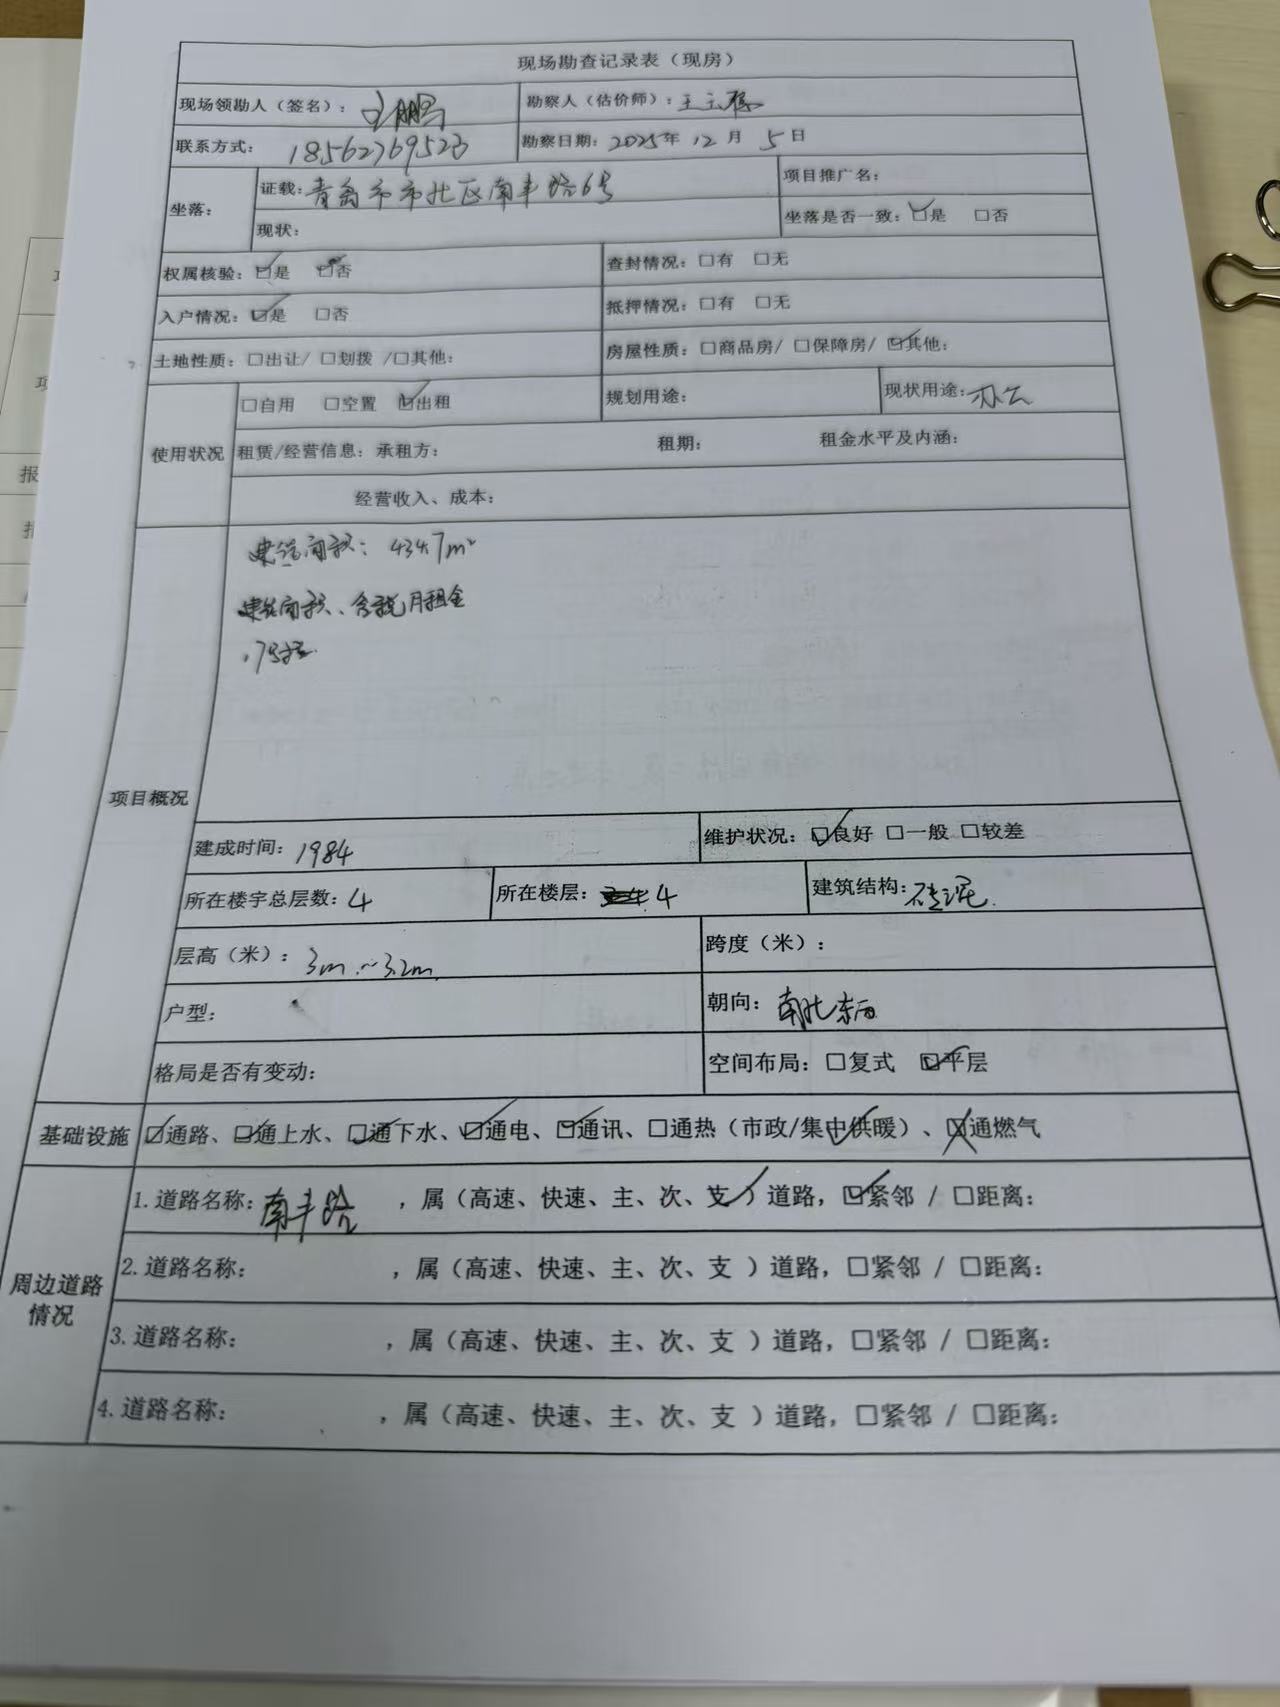 现场勘查记录表（现房）
现场领勘人（签名）： 鹏 勘察人（估价师）：王
联系方式： 18562769523 勘察日期：2025年 12 月 5 日
坐落： 证载：青岛市市北区南丰路6号 项目推广名：
现状： 坐落是否一致：☑是 □否
权属核验：☑是 否 查封情况：□有 □无
入户情况：☑是 □否 抵押情况：□有 □无
土地性质：□出让/ □划拨 /□其他： 房屋性质：□商品房/ □保障房/ ☑其他：
使用状况 □自用 □空置 ☑出租 规划用途： 现状用途：办公
租赁/经营信息：承租方： 租期： 租金水平及内涵：
经营收入、成本：
项目概况
建筑面积： 4347m²
建筑面积、含税月租金
建成时间：1984 维护状况：☑良好 □一般 □较差
所在楼宇总层数：4 所在楼层： 4 建筑结构：
层高（米）：3m～3.2m 跨度（米）：
户型： 朝向：南北东西
格局是否有变动： 空间布局：□复式 ☑平层
基础设施 ☑通路、☑通上水、☑通下水、☑通电、☑通讯、□通热（市政/集中供暖）、☒通燃气
周边道路情况
1.道路名称：南丰路 ，属（高速、快速、主、次、支✓）道路，☑紧邻 / □距离：
2.道路名称： ，属（高速、快速、主、次、支 ）道路，□紧邻 / □距离：
3.道路名称： ，属（高速、快速、主、次、支 ）道路，□紧邻 / □距离：
4.道路名称： ，属（高速、快速、主、次、支 ）道路，□紧邻 / □距离：